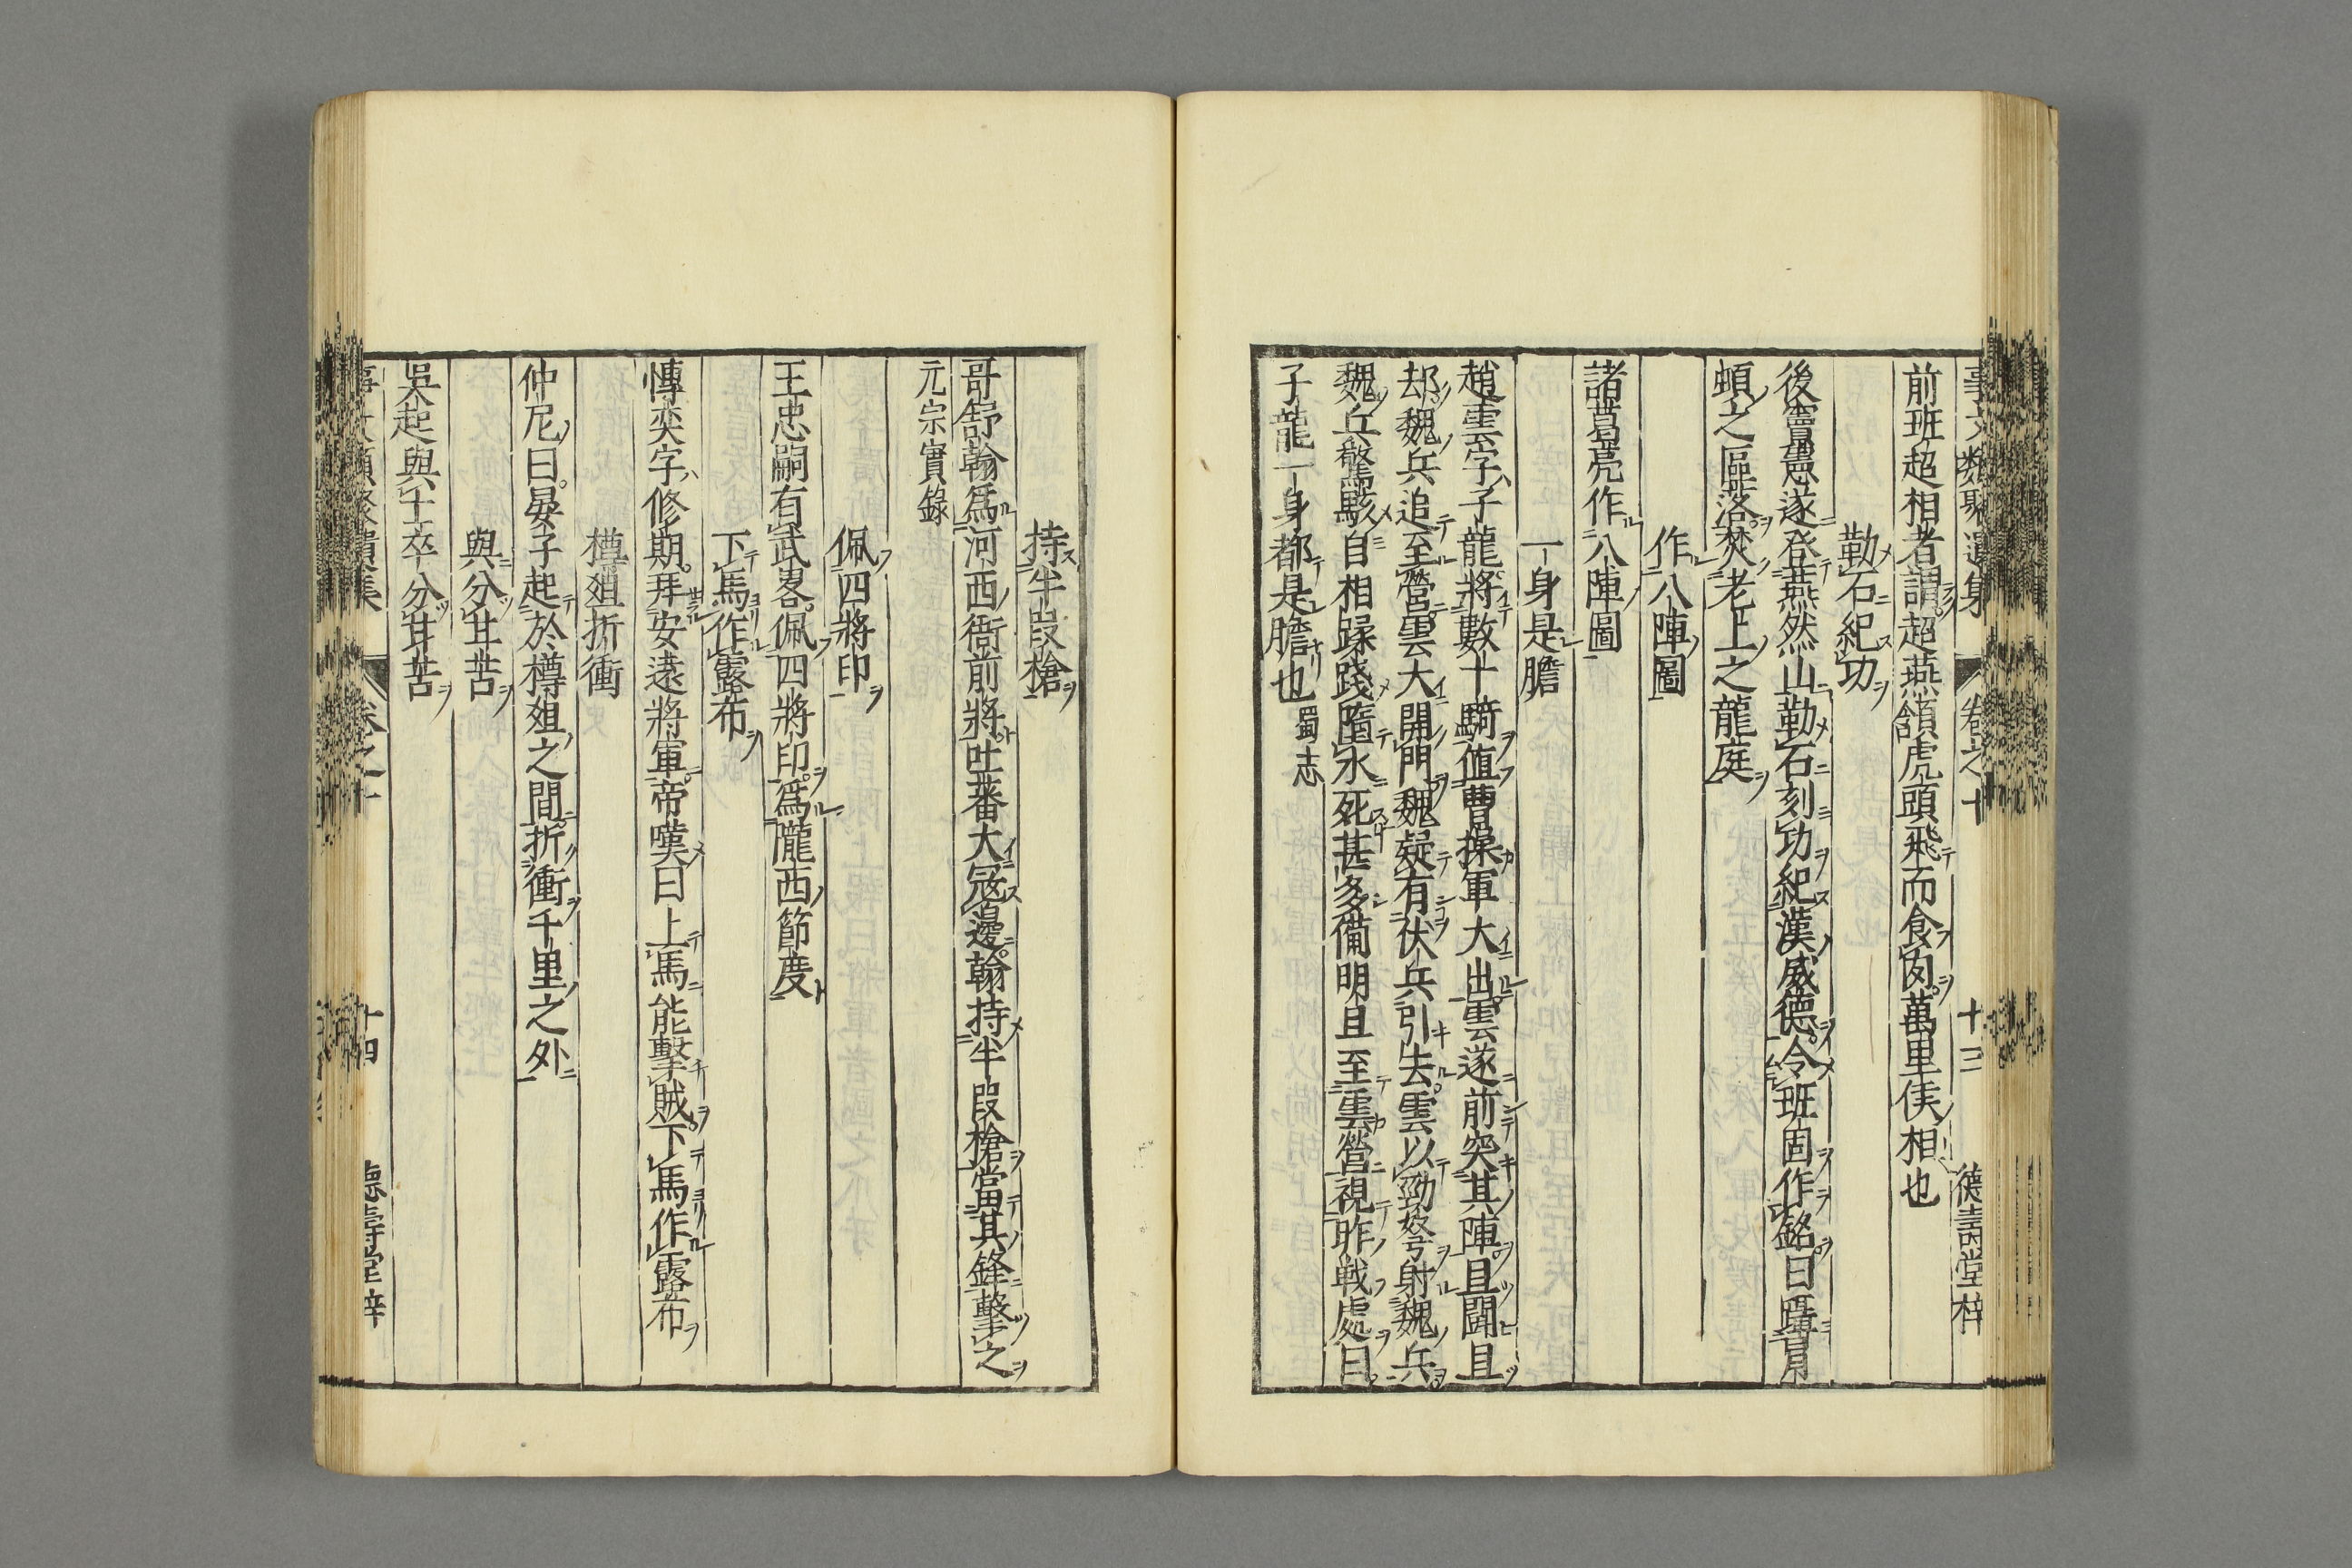 前班超相者謂超燕頷虎頭飛而食肉萬里侯相也
勒石紀功
後竇憲遂登燕然山勒石刻功紀漢威德令班固作銘曰躡冒
頓之區落焚老上之龍庭
作八陣圖
諸葛亮作八陣圖
一身是膽
趙雲字子龍將數十騎值曹操軍大出雲遂前突其陣且鬪且
却魏兵追至營雲大開門魏疑有伏兵引去雲以勁弩射魏兵
魏兵驚駭自相蹂踐墮水死甚多備明旦至雲營視昨戰處曰
子龍一身都是膽也 蜀志
持半段槍
哥舒翰爲河西衙前將吐蕃大冦邊翰持半段槍當其鋒擊之
元宗實錄
佩四將印
王忠嗣有武畧佩四將印爲隴西節度
下馬作露布
傅奕字修期拜安遠將軍帝嘆曰上馬能擊賊下馬作露布
樽爼折衝
仲尼曰晏子起於樽爼之間折衝千里之外
與分甘苦
吳起與士卒分甘苦
卷之十
十三
德壽堂梓
十四